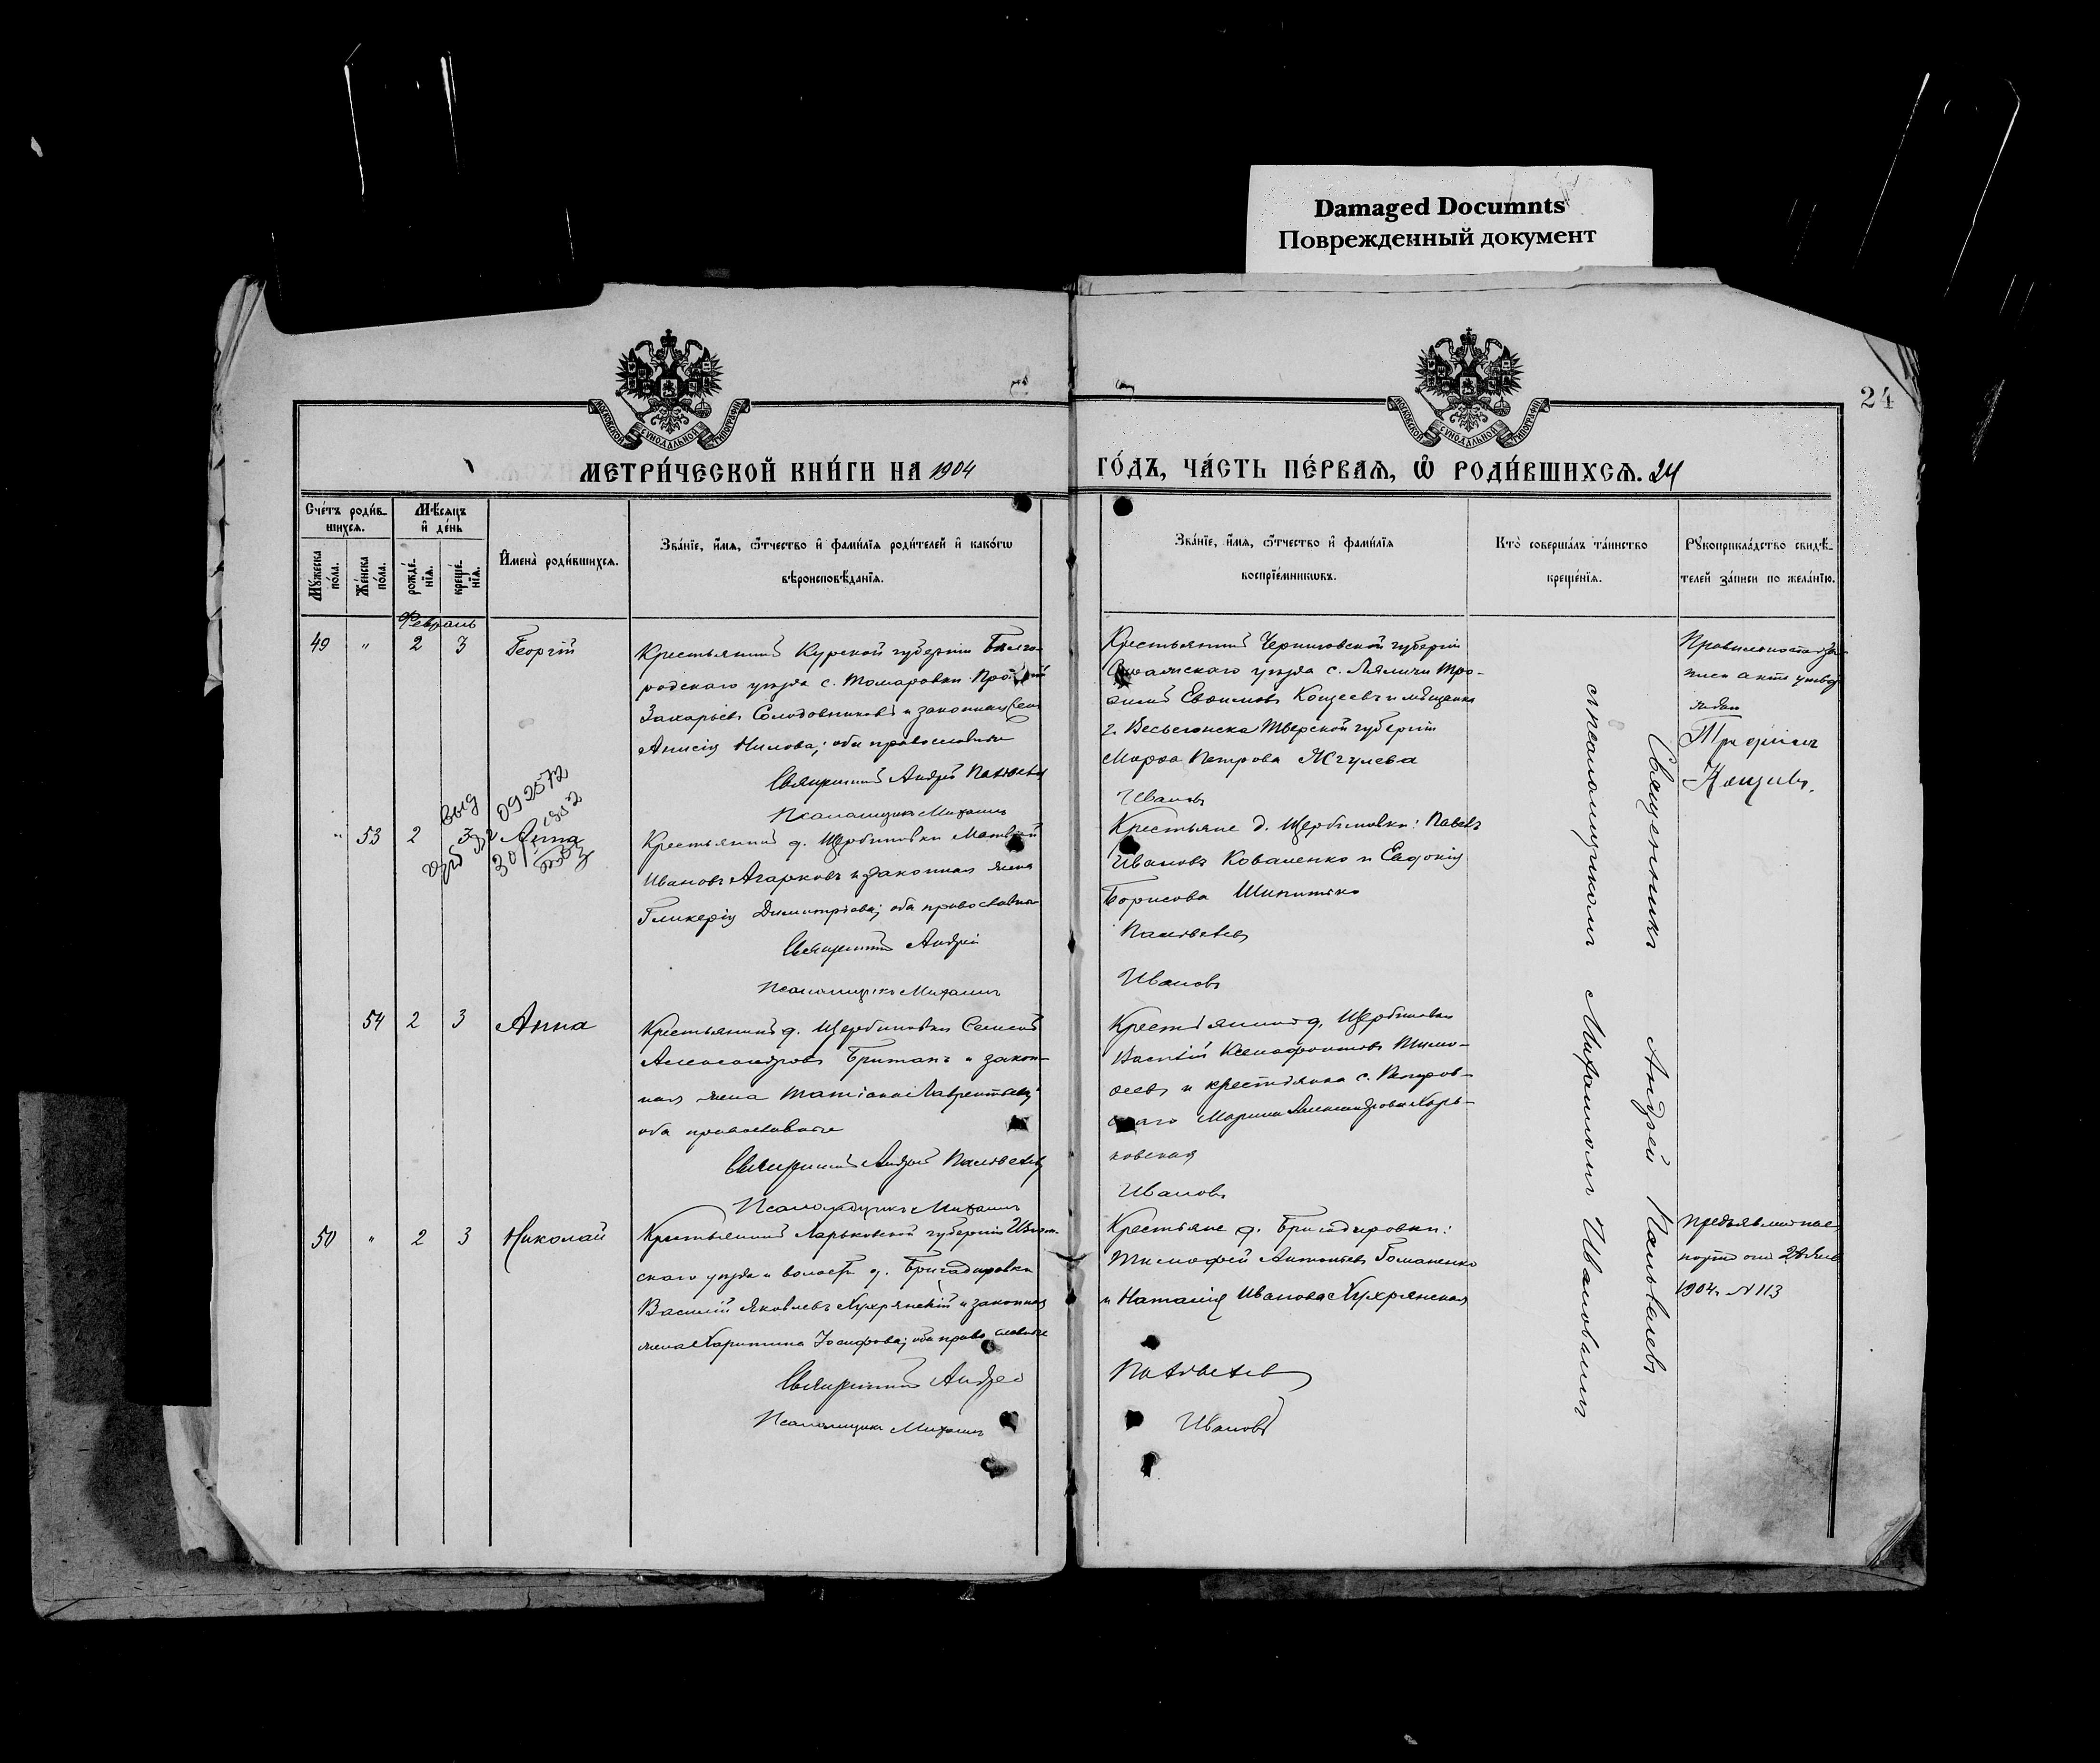 Damaged Documnts
Поврежденный документ
24
МОСКОВСКОЙ СѴНОДАЛЬНОЙ ТИПОГРАФІИ
МОСКОВСКОЙ СѴНОДАЛЬНОЙ ТИПОГРАФІИ
МЕТРИ́ЧЕСКОЙ КНИ́ГИ НА 1904
ГО́ДЪ, ЧА́СТЬ ПЕ́РВАѦ, Ѡ҆ РОДИ́ВШИХСѦ. 24
Сче́тъ роди́в-
шихсѧ.
Мꙋ́жеска по́ла.
Же́нска по́ла.
Мѣ́сѧцъ
и҆ де́нь
рожде́-
нїѧ.
креще́-
нїѧ.
И҆мена̀ роди́вшихсѧ.
Зва́нїе, и҆́мѧ, ѻ҆́тчество и҆ фами́лїѧ роди́телей и҆ како́гѡ
вѣроисповѣ́данїѧ.
Зва́нїе, и҆́мѧ, ѻ҆́тчество и҆ фами́лїѧ
воспрїе́мникѡвъ.
Кто̀ соверша́лъ та́инство
креще́нїѧ.
Рꙋкоприкла́дство свидѣ́-
телей за́писи по жела́нїю.
Февраль
49 " 2 3 Георгій
Крестьянинъ Курской губерніи Бѣлго-
родскаго уѣзда с. Томаровки
Захарьевъ Солодовниковъ и законная жена
Анисія Нилова; оба православные
Священникъ Андрей Пантелеевъ
Псаломщикъ Михаилъ
Крестьянинъ Черниговской губерніи
уѣзда с. Ляличи Тро-
фимъ Евфимовъ Кощеевъ и мѣщанка
г. Весьегонска Тверской губерніи
Марфа Петрова Жгулева
Ивановъ
Правильность за-
писи акта
Трофимъ
Кощеевъ.
" 53 2 3 Анна
выд
092572
Крестьянинъ д. Щербиновки Матвѣй
Ивановъ Агарковъ и законная жена
Гликерія Димитріева; оба православные
Священникъ Андрей
Псаломщикъ Михаилъ
Крестьяне д. Щербиновки: Павелъ
Ивановъ Коваленко и Евдокія
Борисова
Пантелеевъ
Ивановъ
54 2 3 Анна
Крестьянинъ д. Щербиновки Семенъ
Александровъ Бритакъ и закон-
ная жена Татіана Лаврентьева;
оба православные
Священникъ Андрей Пантелеевъ
Псаломщикъ Михаилъ
Крестьянинъ д. Щербиновки
Василій Ксенофонтовъ Тимо-
феевъ и крестьянка с. Петров-
скаго Марина Александрова Харь-
ковская
Ивановъ
50 " 2 3 Николай
Крестьянинъ Харьковской губерніи Изюм-
скаго уѣзда и волости д. Бригадировки
Василій Яковлевъ Кухрянскій и законная
жена Харитина Іосифова; оба православные
Священникъ Андрей
Псаломщикъ Михаилъ
Крестьяне д. Бригадировки:
Тимофей Антоньевъ Гоманенко
и Наталія Иванова Кухрянская
Пантелеевъ
Ивановъ
Предъявлен пас-
портъ отъ
1904 г. N 113
Священникъ Андрей Пантелеевъ
съ псаломщикомъ Михаиломъ Ивановымъ